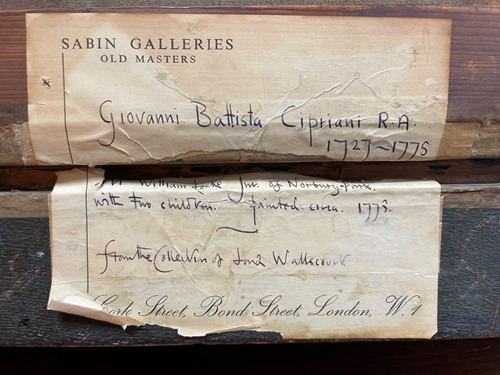 SABIN GALLERIES
OLD MASTERS
Giovanni Battista Cipriani R.A.
1727~1775
William Locke Jnr. of Norbury Park.
with two children. painted circa. 1773.
from the Collection of Lord Wallscourt
Cork Street, Bond Street, London, W.1